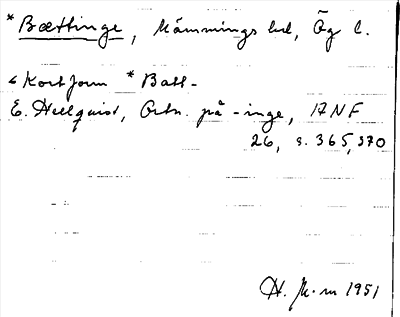 *Bættinge, Kämmings hd, Ög l.
< Kortform *Batt-
E. Hellquist, Ortn. på -inge, ANF
26, s. 365, 370
H. M-m 1951